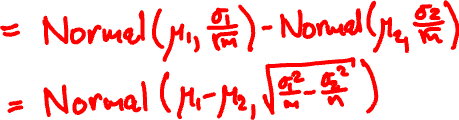 = Normal(μ₁, σ₁/√m) - Normal(μ₂, σ₂/√n)
= Normal(μ₁-μ₂, √(σ₁²/m - σ₂²/n))